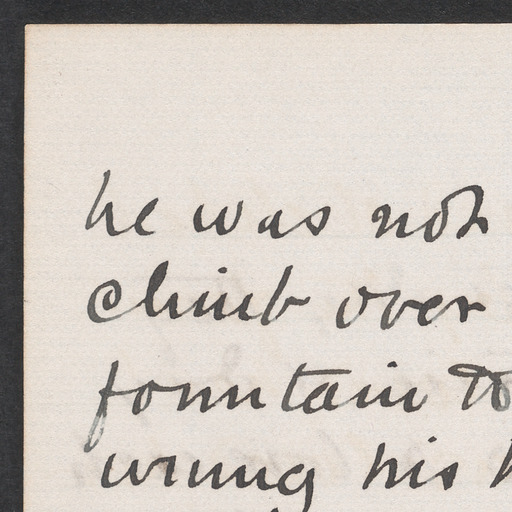 he was not
climb over
fountain to
wrung his